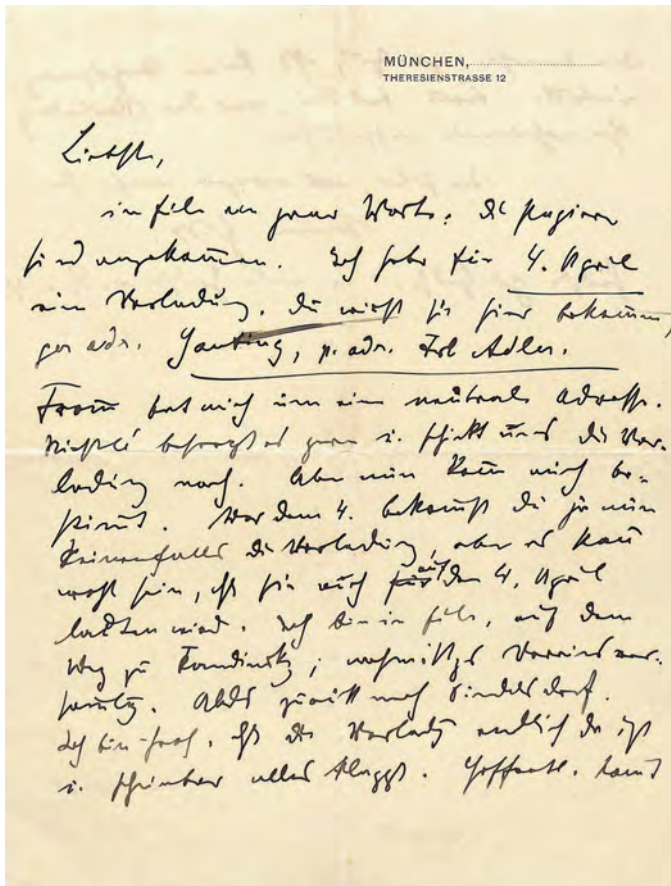 MÜNCHEN,
THERESIENSTRASSE 12
Liebste,
in Eile ein paar Worte: die Papiere
sind angekommen. Ich habe für 4. April
ein Vorladung. du wirst sie hier bekommen,
per adr. Gauting, p. adr. Frl Adler.
Fromm bat mich um eine neutrale Adresse.
Niestlé besorgt es gern u. schickt uns die Vor-
ladung nach. Aber nun kam mich be-
stimmt. Vor dem 4. bekommst du ja nun
keinenfalls die Vorladung, aber es kann
wohl sein, dß sie auch für auf den 4. April
lauten wird. Ich bin in Eile, auf dem
Weg zu Kandinsky; nachmittgs Vereinsver-
samlg. Abds zurück nach Sindelsdorf.
Ich bin froh, dß die Vorladg endlich da ist
u. scheinbar alles klappt. Hoffentl.